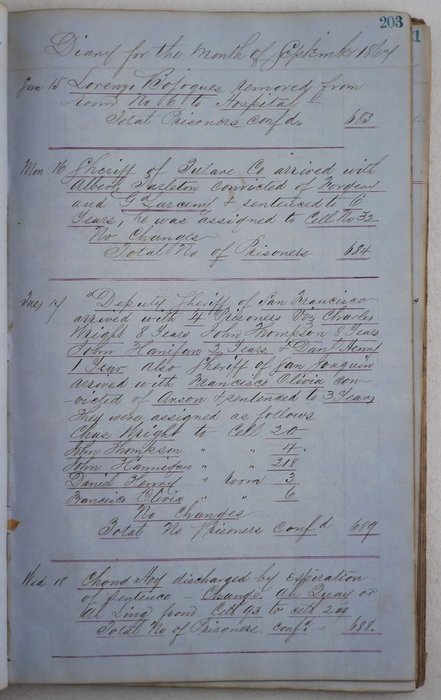 203
Diary for the Month of September 1867
Sun 15 Lorenzo Bojoques removed from
room No 6 to Hospital
Total Prisoners conf'd 683
Mon 16 Sheriff of Tulare Co arrived with
Albert Tarleton convicted of Forgery
and Gd Larceny & sentenced to 6
Years, he was assigned to Cell No 33
No Changes
Total No of Prisoners 684
Tues 17 Deputy Sheriff of San Francisco
arrived with 4 Prisoners Viz Charles
Wright 8 Years John Thompson 8 Years
John Hanifan Years & Danl Henry
1 Year also Sheriff of San Joaquin
arrived with Francisco Olivia con-
-victed of Arson & sentenced to 3 Years
They were assigned as follows
Chas Wright to Cell 20
John Thompson " " 4
John Hannifan " " 218
Daniel Henry " Room 3
Francisco Olivia " " 6
No Changes
Total No Prisoners Conf'd 689
Wed 18 Chong Hoy discharged by expiration
of sentence – Change, Ah Quay or
Ah Ling from Cell 93 to cell 244
Total No of Prisoners conf'd – 688.